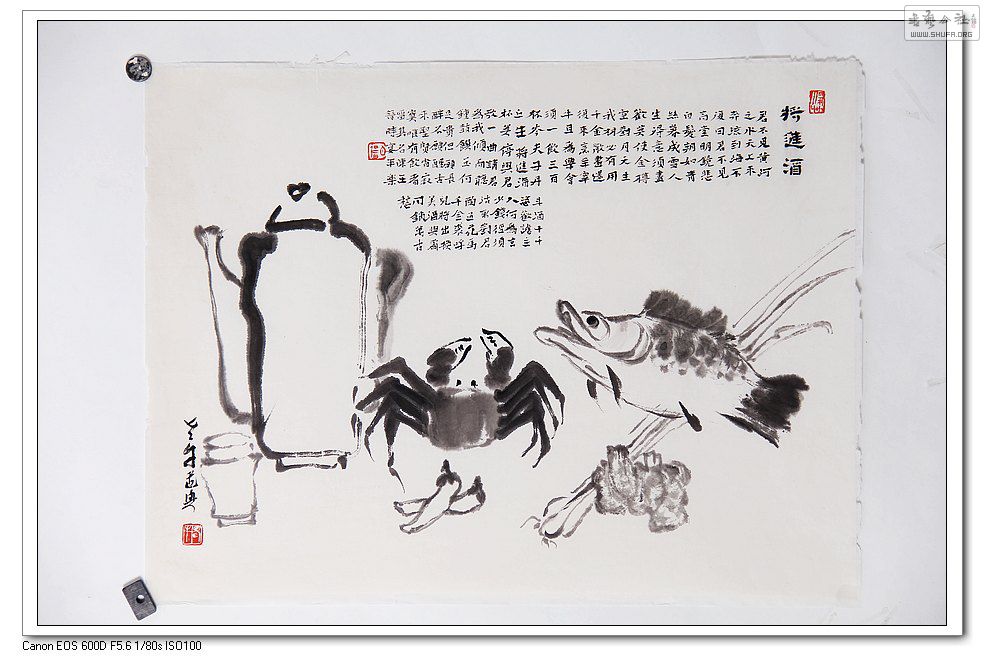 将進酒
君不見黄河
之水天上来
奔流到海不
復回君不見
高堂明鏡悲
白髮朝如青
丝暮成雪人
生得意須盡
歡莫使金樽
空對月天生
我材必有用
千金散盡還
復来烹羊宰
牛且為樂會
須一飲三百
杯岑夫子丹
丘生将進酒
杯莫停與君
歌一曲請君
為我傾耳聽
鐘鼓饌玉何
足貴但願長
醉不願醒古
来聖賢皆寂
寞唯有飲者
留其名陳王
昔時宴平樂
斗酒十千
恣歡謔主
人何為言
少錢徑須
沽取對君
酌五花馬
千金裘呼
兒将出換
美酒與爾
同銷萬古
愁
WWW.SHUFA.ORG
Canon EOS 600D F5.6 1/80s ISO100